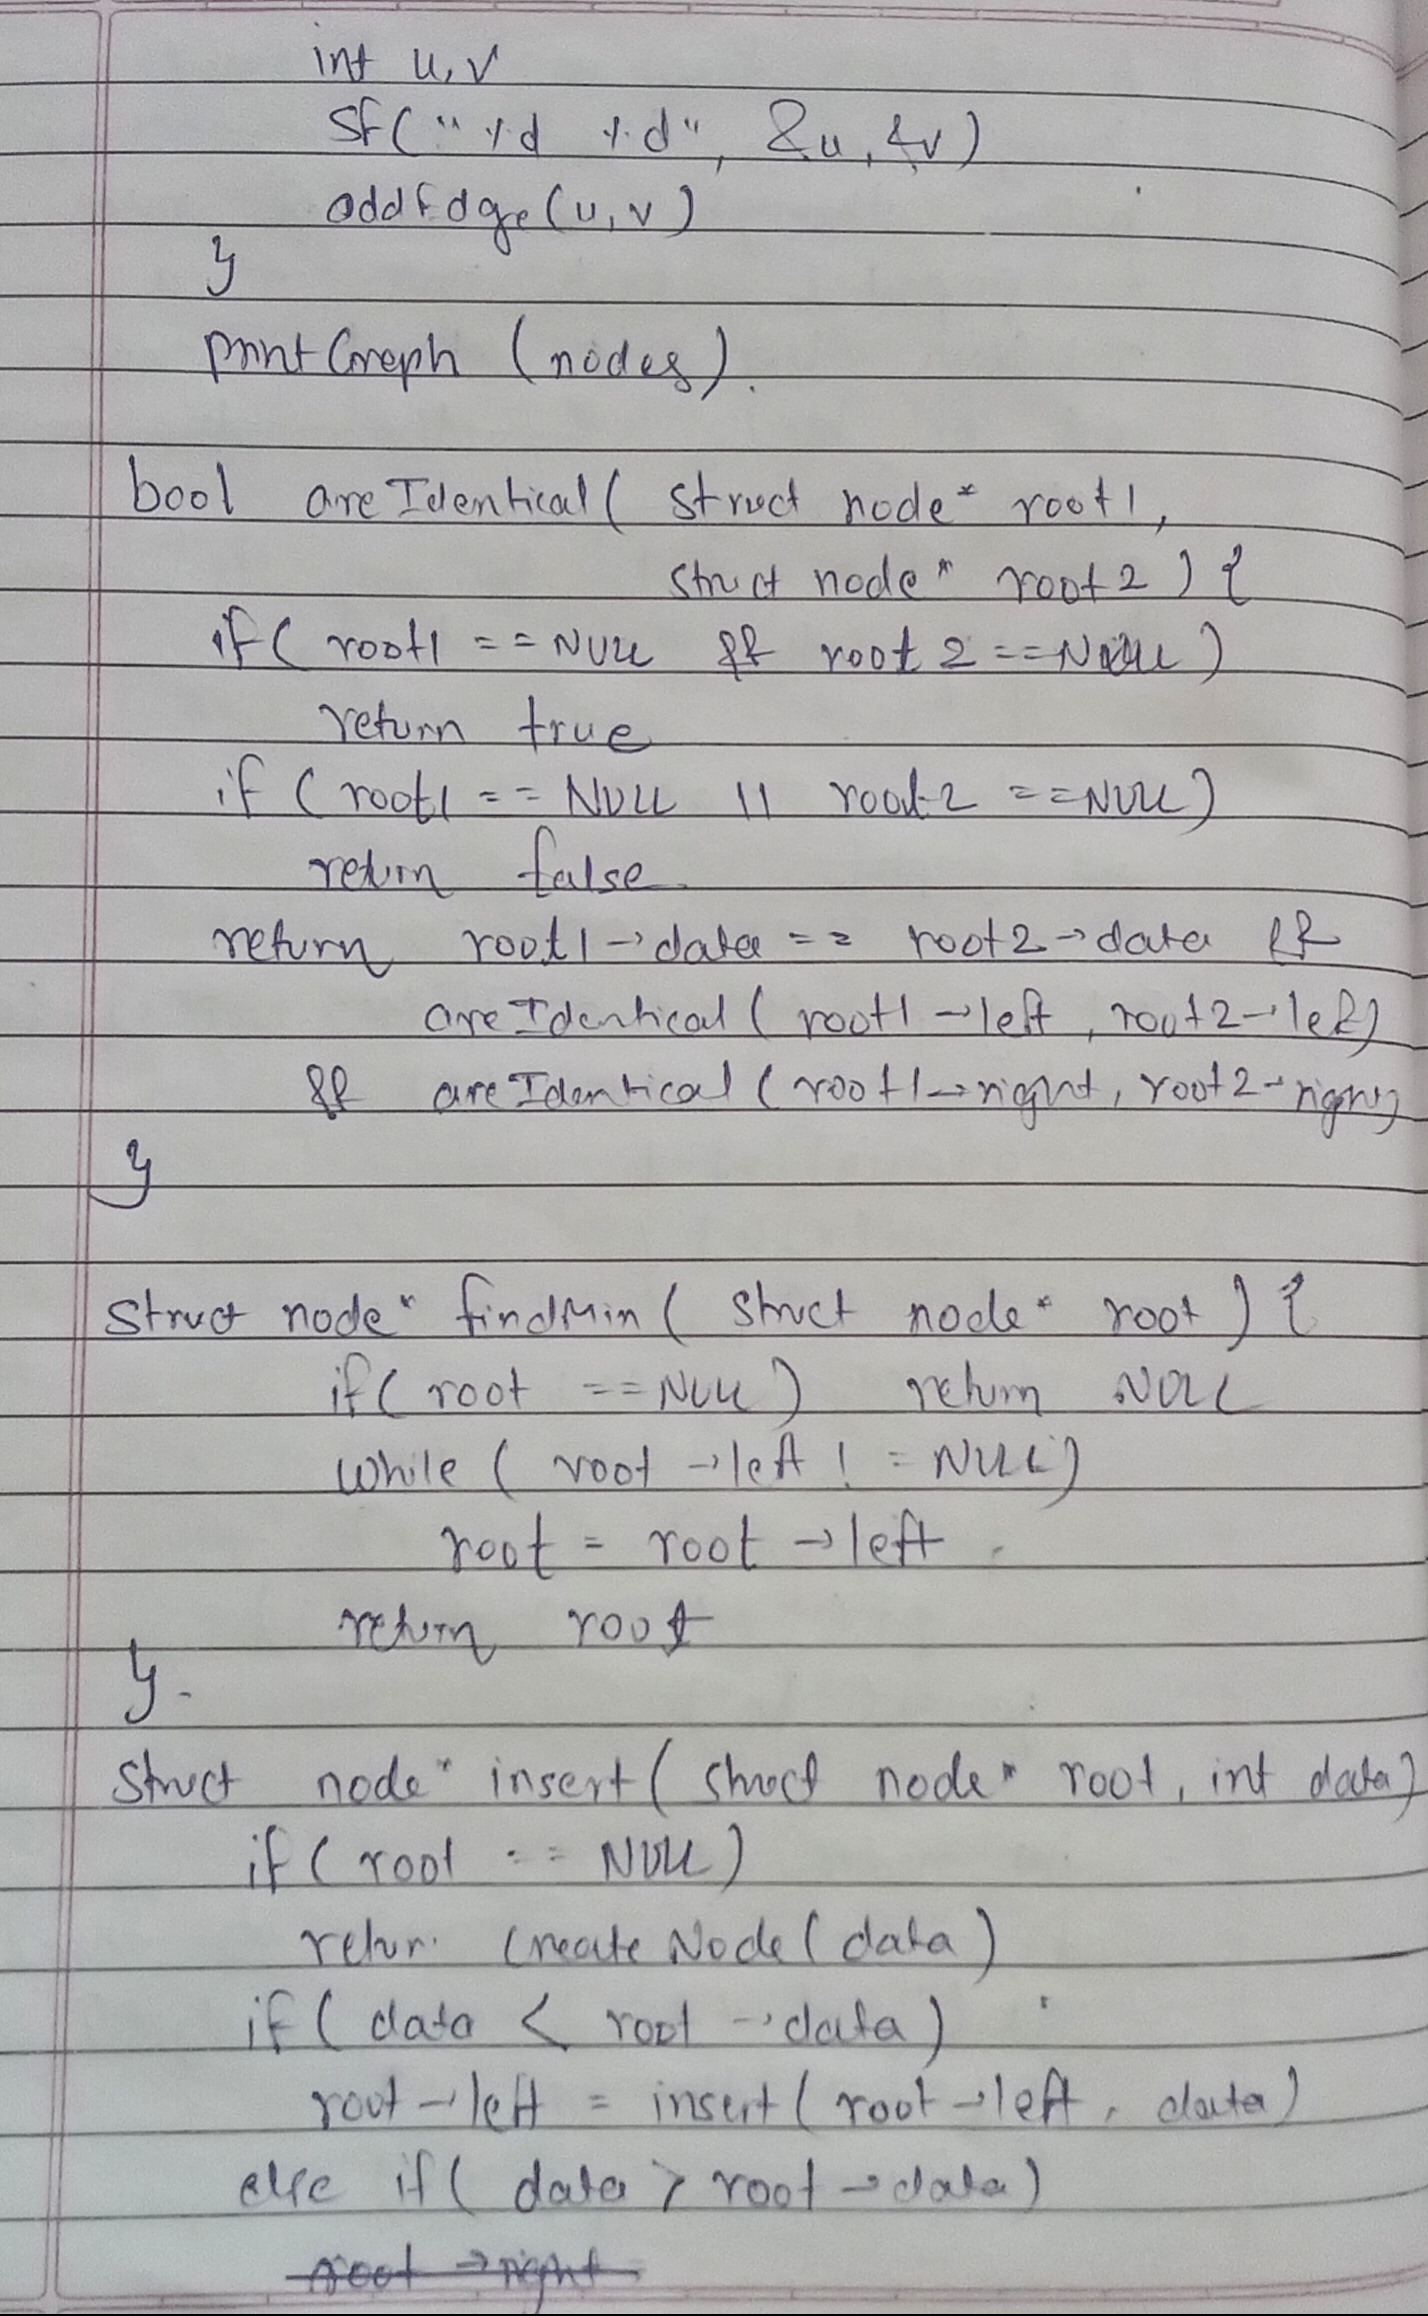 int u, v
sf("%d %d", &u, &v)
addEdge(u, v)
}
printGraph (nodes).
bool areIdentical( struct node* root1,
struct node* root2 ) {
if( root1 == NULL && root2 == NULL )
return true
if ( root1 == NULL || root2 == NULL )
return false.
return root1 → data == root2 → data &&
areIdentical ( root1 → left, root2 → left)
&& areIdentical ( root1 → right, root2 → right)
}
struct node* findMin ( struct node* root ) {
if( root == NULL ) return NULL
while ( root → left != NULL )
root = root → left.
return root
}.
struct node* insert ( struct node* root, int data)
if ( root == NULL )
retur. createNode ( data )
if ( data < root → data )
root → left = insert ( root → left, data )
else if ( data > root → data )
root → right